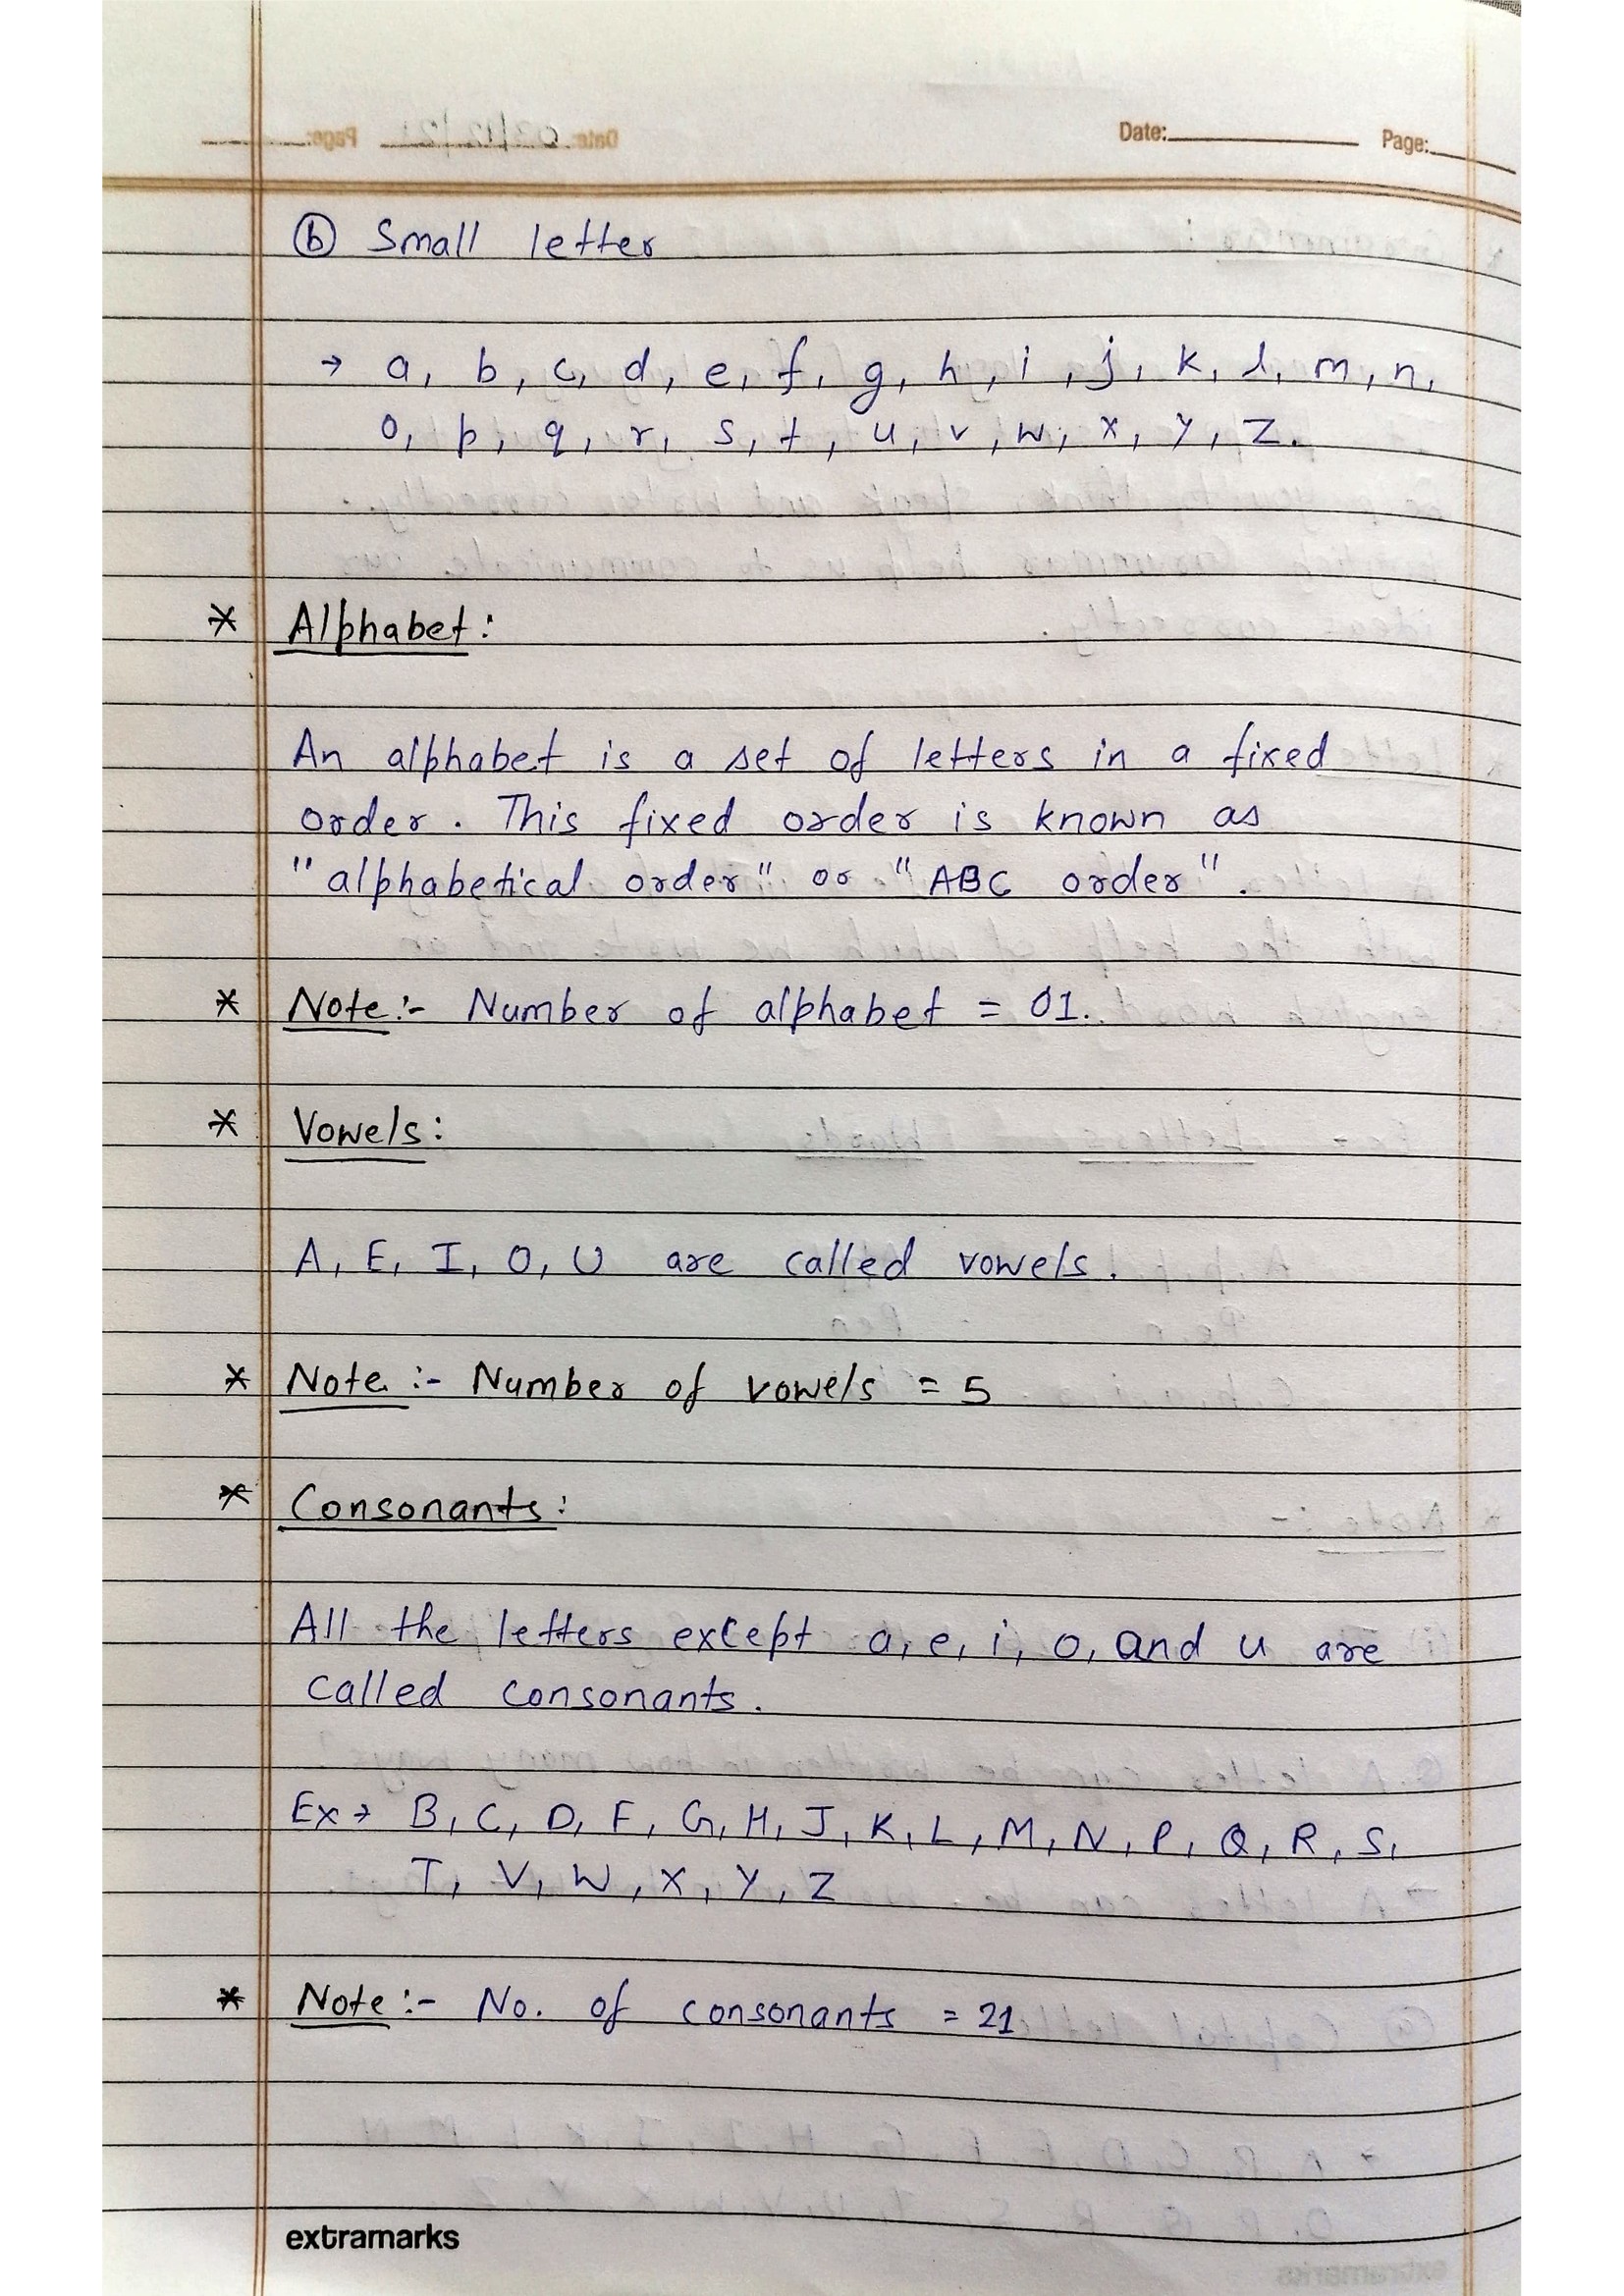 Date: Page:
ⓑ Small letter
→ a, b, c, d, e, f, g, h, i, j, k, l, m, n,
o, p, q, r, s, t, u, v, w, x, y, z.
* Alphabet:
An alphabet is a set of letters in a fixed
order. This fixed order is known as
"alphabetical order" or "ABC order".
* Note:- Number of alphabet = 01.
* Vowels:
A, E, I, O, U are called vowels.
* Note:- Number of vowels = 5
* Consonants:
All the letters except a, e, i, o, and u are
called consonants.
Ex→ B, C, D, F, G, H, J, K, L, M, N, P, Q, R, S,
T, V, W, X, Y, Z
* Note:- No. of consonants = 21
extramarks